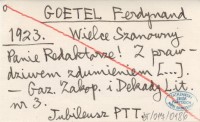 GOETEL Ferdynand
1923. Wielce Szanowny
Panie Redaktorze! Z praw-
dziwem zdumieniem [...].
– Gaz. Zakop. i Dekady Lit.
nr 3.
Jubileusz PTT.